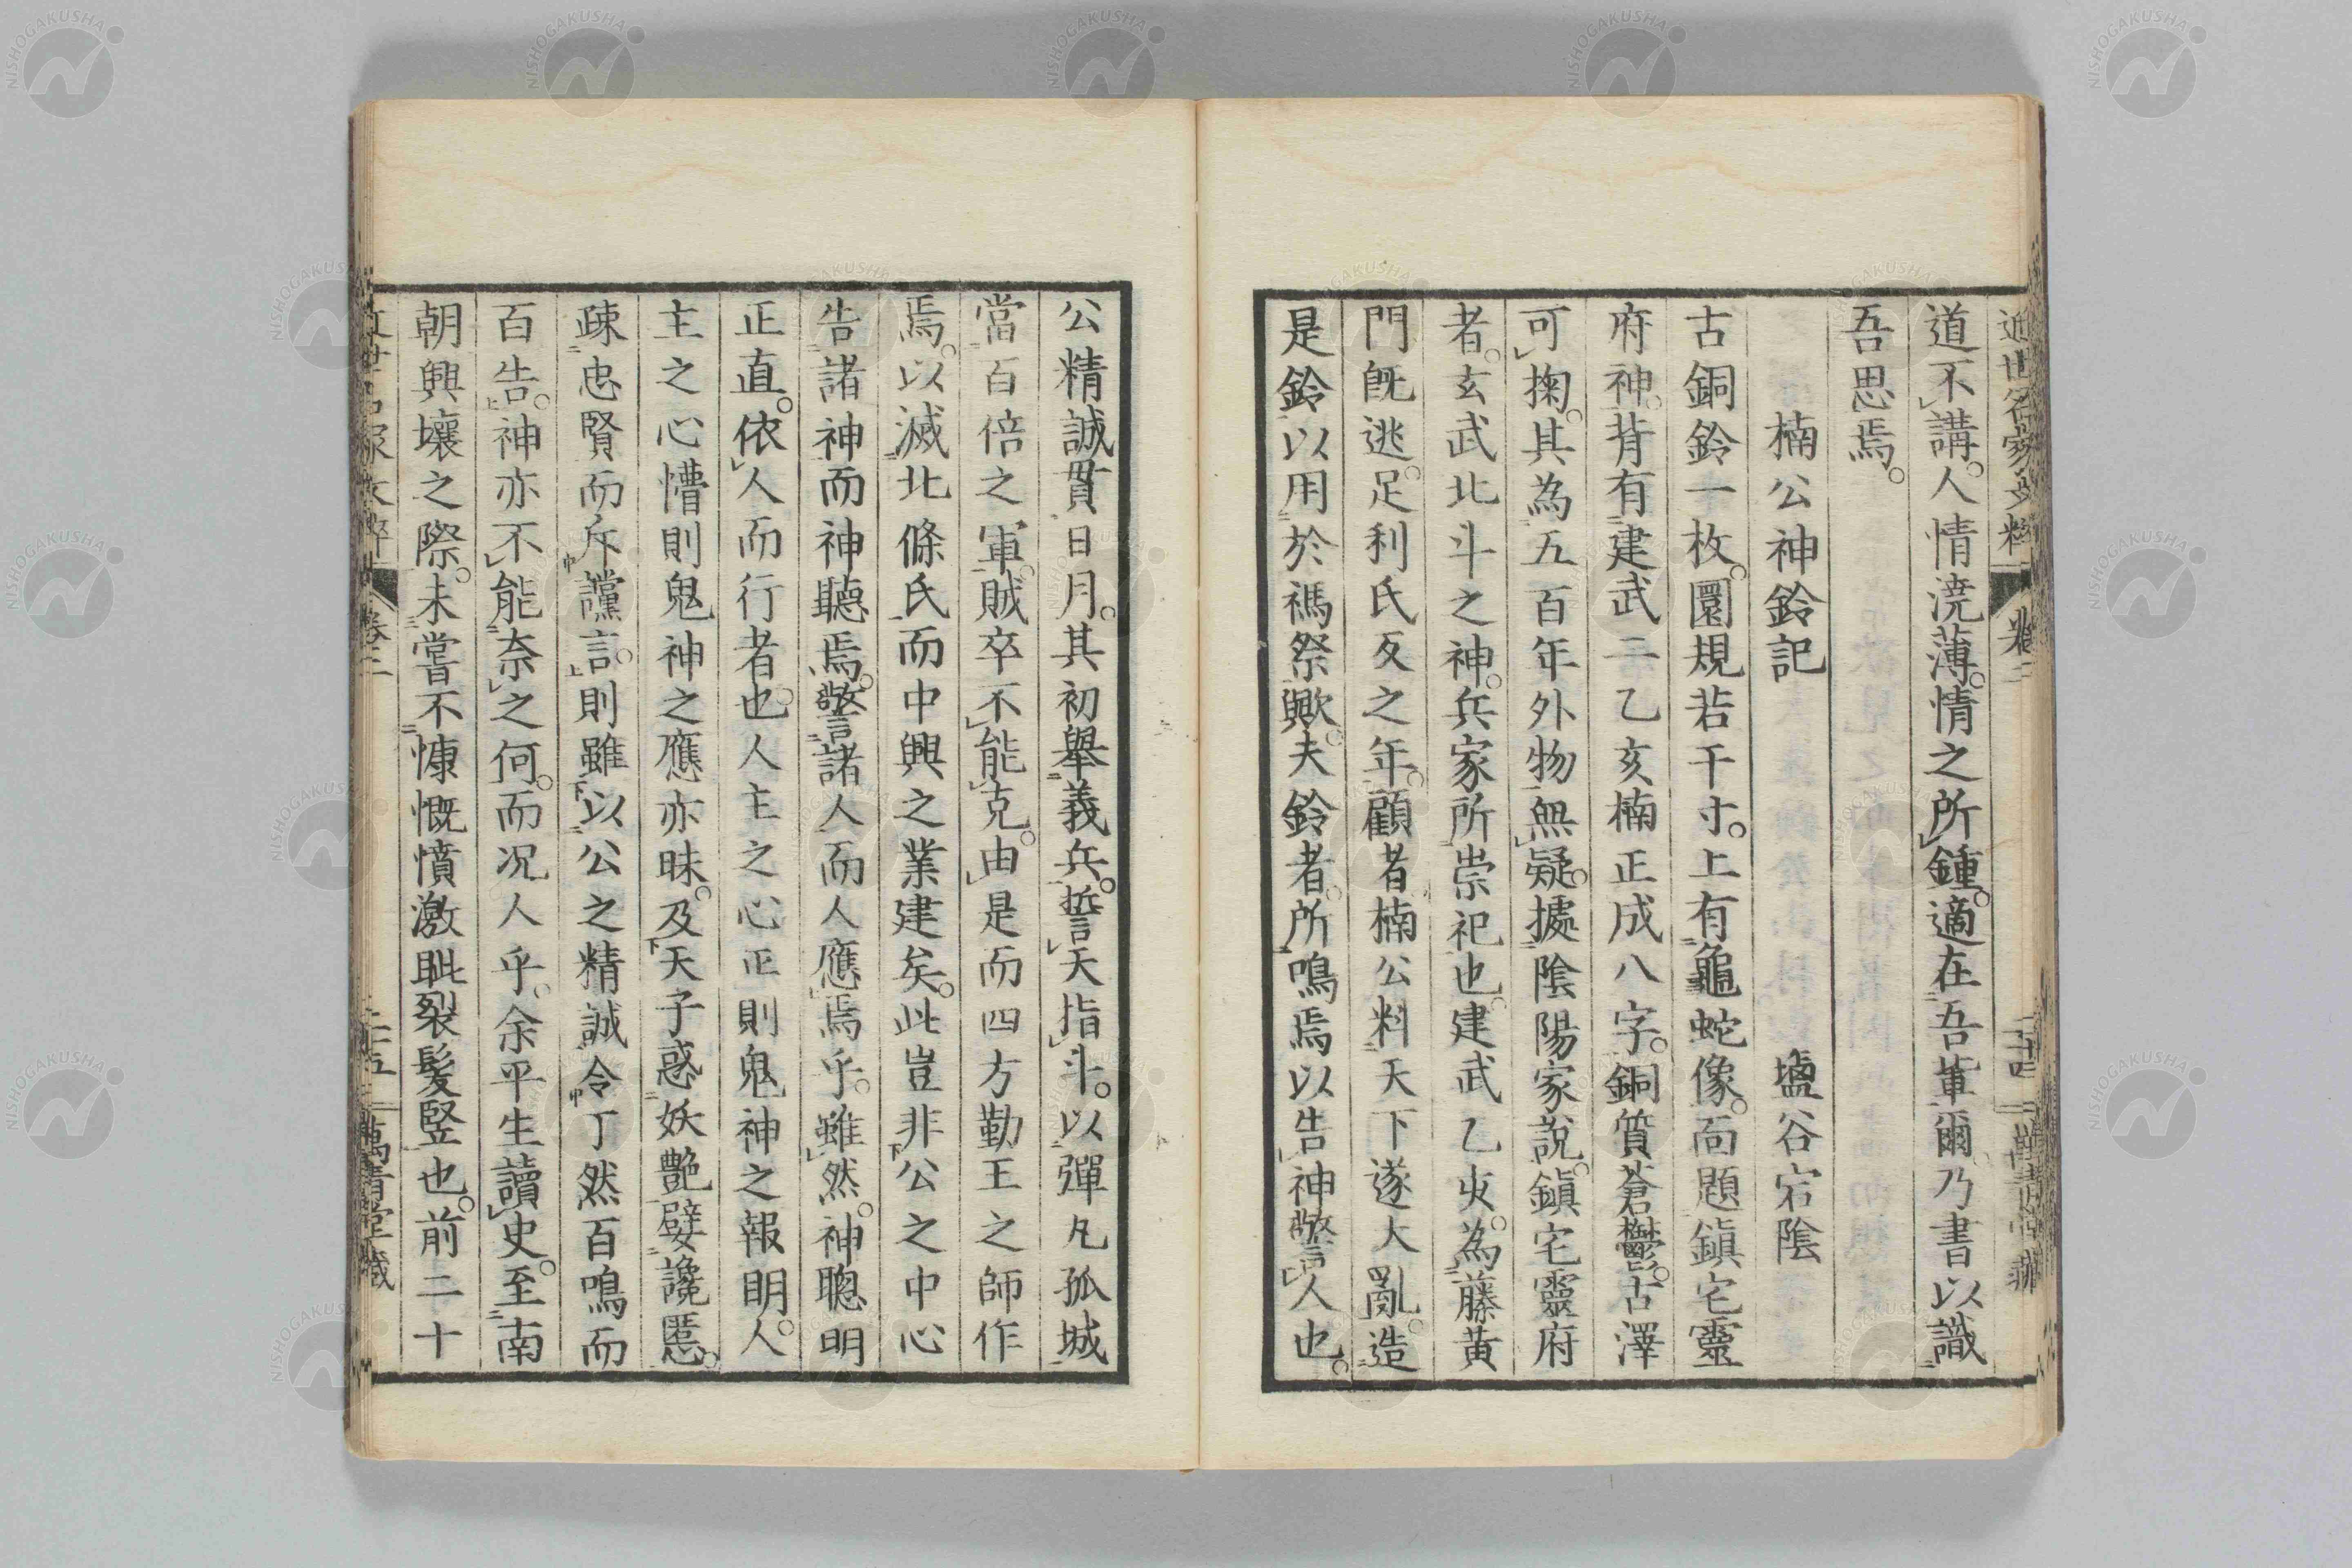 道不講。人情澆薄。情之所鍾。適在吾輩爾。乃書以識
吾思焉。
楠公神鈴記　鹽谷宕陰
古銅鈴一枚。圜規若干寸。上有龜蛇像。面題鎮宅靈
府神。背有建武二乙亥楠正成八字。銅質蒼鬱。古澤
可掬。其為五百年外物無疑。據陰陽家說。鎮宅靈府
者。玄武北斗之神。兵家所崇祀也。建武乙亥。為藤黃
門既逃。足利氏反之年。顧者楠公料天下遂大亂。造
是鈴以用於禡祭歟。夫鈴者。所鳴焉以告神警人也。
公精誠貫日月。其初舉義兵。誓天指斗。以彈丸孤城
當百倍之軍。賊卒不能克。由是而四方勤王之師作
焉。以滅北條氏而中興之業建矣。此豈非公之中心
告諸神而神聽焉。警諸人而人應焉乎。雖然。神聰明
正直。依人而行者也。人主之心正則鬼神之報明。人
主之心懵則鬼神之應亦昧。及天子惑妖艷嬖讒慝。
疎忠賢而斥讜言。則雖以公之精誠令丁然百鳴而
百告。神亦不能奈之何。而況人乎。余平生讀史。至南
朝興壞之際。未嘗不慷慨憤激眦裂髮竪也。前二十
近世名家文粹　卷二
卷二　二十五　萬青堂藏